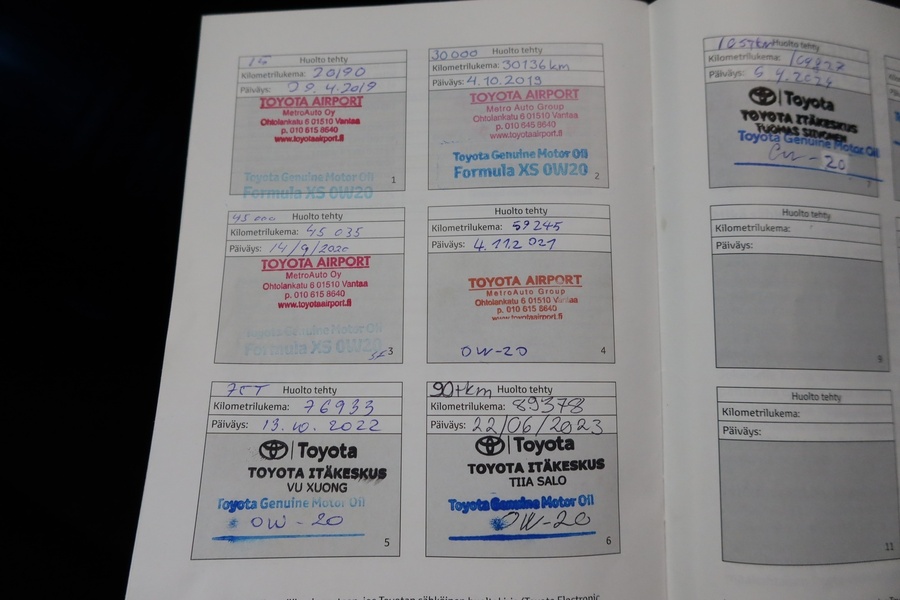 15 Huolto tehty
Kilometrilukema: 20190
Päiväys: 29.4.2019
TOYOTA AIRPORT
MetroAuto Oy
Ohtolankatu 6 01510 Vantaa
p. 010 615 8640
www.toyotaairport.fi
Toyota Genuine Motor Oil
Formula XS 0W20
1
30000 Huolto tehty
Kilometrilukema: 30136 km
Päiväys: 4.10.2019
TOYOTA AIRPORT
MetroAuto Group
Ohtolankatu 6 01510 Vantaa
p. 010 615 8640
www.toyotaairport.fi
Toyota Genuine Motor Oil
Formula XS 0W20
2
45 000 Huolto tehty
Kilometrilukema: 45 035
Päiväys: 14/9/2020
TOYOTA AIRPORT
MetroAuto Oy
Ohtolankatu 6 01510 Vantaa
p. 010 615 8640
www.toyotaairport.fi
Toyota Genuine Motor Oil
Formula XS 0W20
3
Huolto tehty
Kilometrilukema: 59245
Päiväys: 4.11.2021
TOYOTA AIRPORT
MetroAuto Group
Ohtolankatu 6 01510 Vantaa
p. 010 615 8640
www.toyotaairport.fi
0W-20
4
75T Huolto tehty
Kilometrilukema: 76933
Päiväys: 13.10.2022
Toyota
TOYOTA ITÄKESKUS
VU XUONG
Toyota Genuine Motor Oil
0W-20
5
90tkm Huolto tehty
Kilometrilukema: 89378
Päiväys: 22/06/2023
Toyota
TOYOTA ITÄKESKUS
TIIA SALO
Toyota Genuine Motor Oil
0W-20
6
105tkm Huolto tehty
Kilometrilukema:
Päiväys:
Toyota
TOYOTA ITÄKESKUS
TUOMAS
Toyota Genuine Motor Oil
0W-20
7
Huolto tehty
Kilometrilukema:
Päiväys:
9
Huolto tehty
Kilometrilukema:
Päiväys:
11